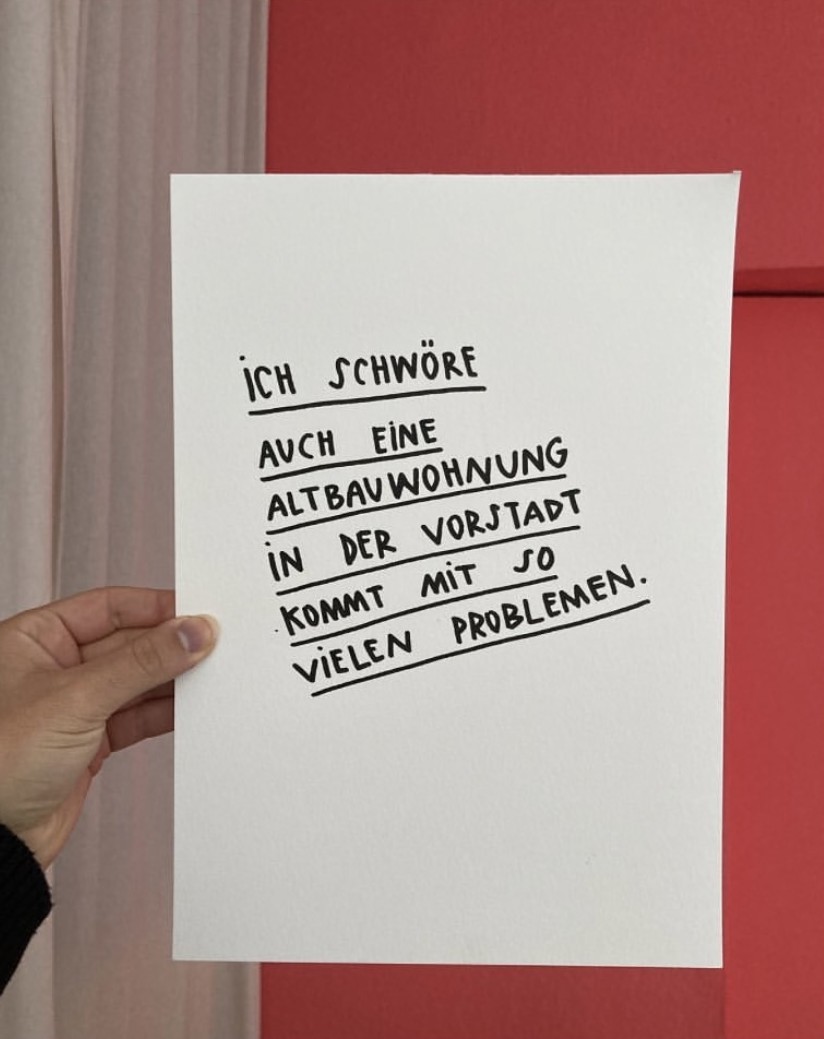 ICH SCHWÖRE
AUCH EINE
ALTBAUWOHNUNG
IN DER VORSTADT
KOMMT MIT SO
VIELEN PROBLEMEN.